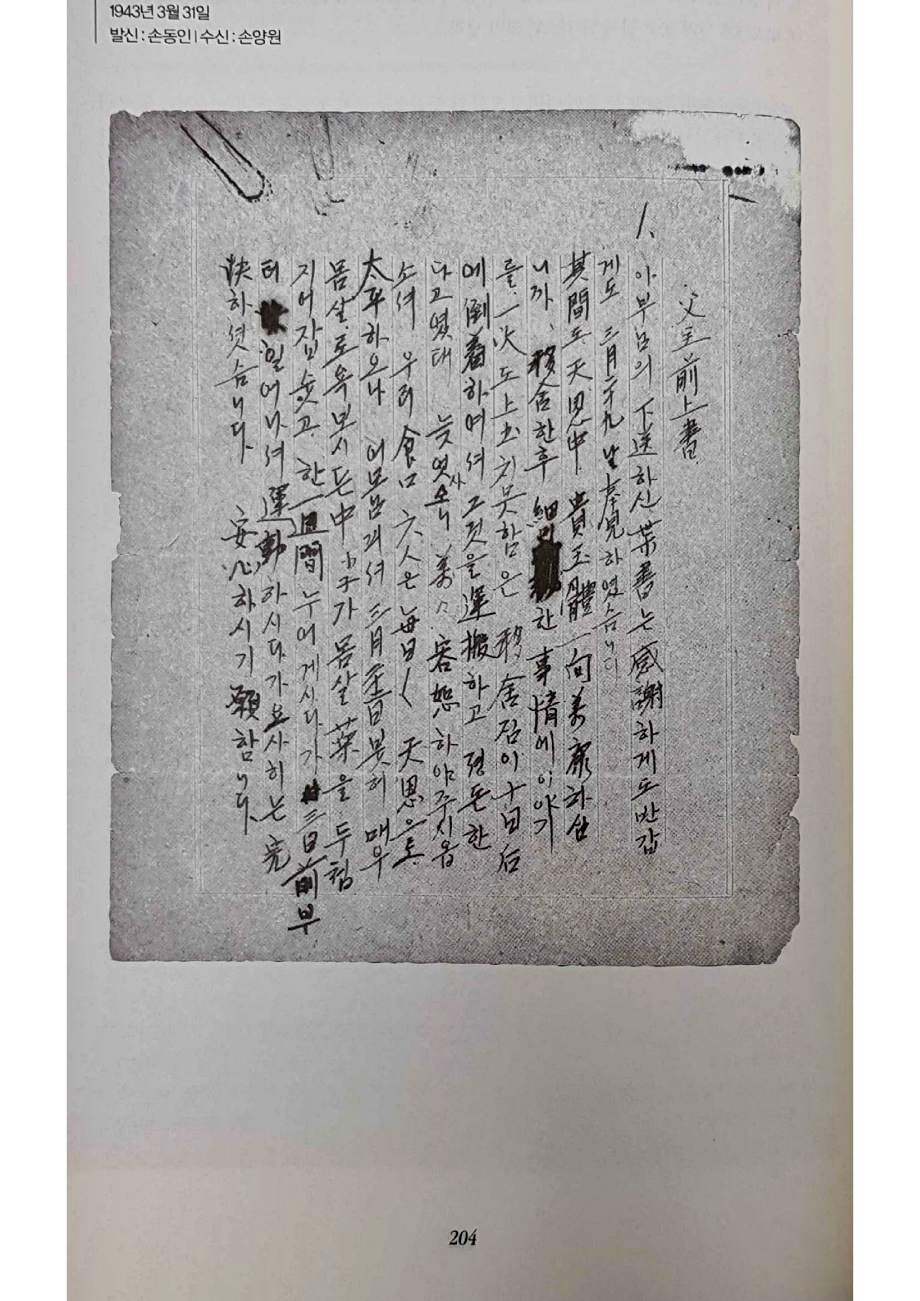 1943년 3월 31일
발신 : 손동인 | 수신 : 손양원
父主前上書.
1、아부님의 下送하신 葉書는 感謝하게도 반갑
게도 三月二十九날 奉見하였습니다
其間도 天恩中 貴玉體 一向萬康하심
니까、移舍한후 細 한 事情에 이야기
를、一次도 上 치못함은 移舍짐이 十日后
에 倒着하여셔 그것을 運搬하고 졍돈한
다고 였태 늣엿사오니 萬々 容恕하야주시옵
소셔 우리 食口 六人은 每日〱 天恩으로
太平하오나 어모님괴셔 三月 붓허 매우
몸살、로 욕보시든中 小子가 몸살 葉을 두첩
지어 잡숫고、한 一週間 누어게시다가 三日前부
터 일어나셔 運動하시다가 요사히는 完
快하셧슴니다. 安心하시기 願함니다.
204